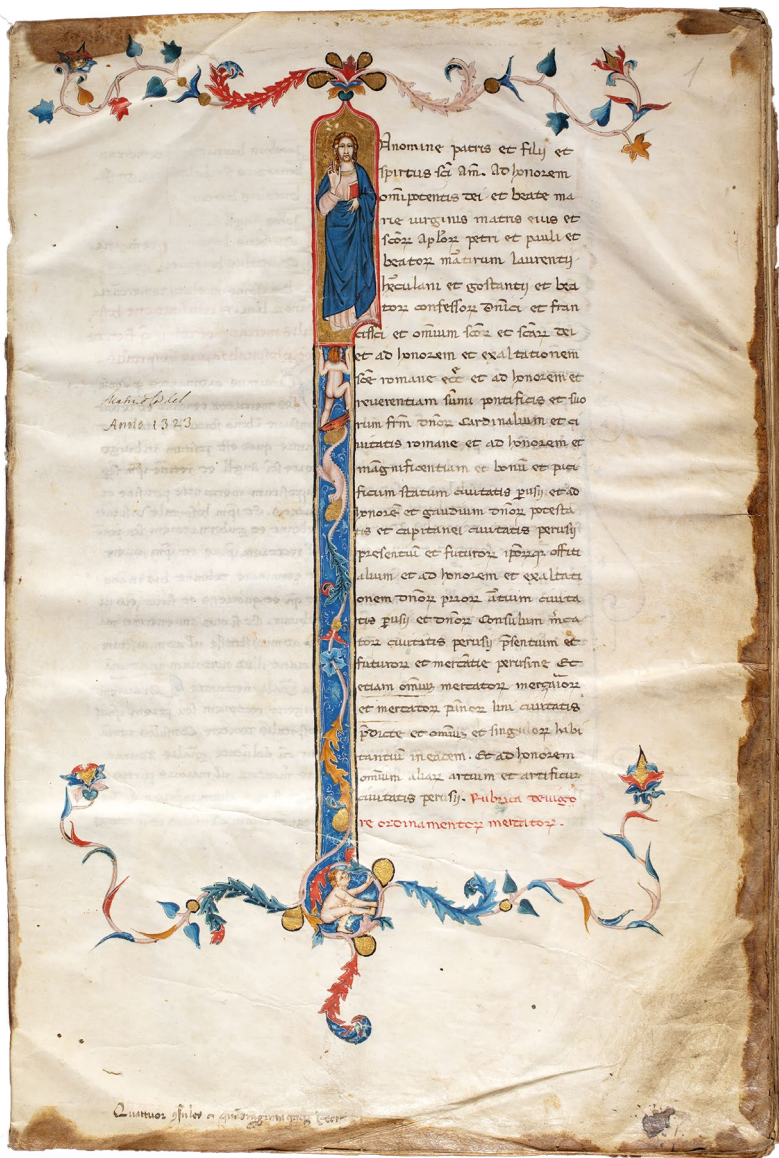 1
Anomine patris et filij et
spiritus sci Am̄. Ad honorem
om̄ipotentis dei et beate ma
rie uirginis matris eius et
scōꝝ Aplōꝝ petri et pauli et
beatoꝝ mātirum laurentij
hēculani et gostantij et bea
toꝝ confessoꝝ dn̄ici et fran
cisci et omīum scōꝝ et scāꝝ dei
et ad honorem et exaltationem
scē romane ecc̄e et ad honorem et
reuerentiam sūmi pontificis et suo
rum frm̄ dn̄oꝝ Cardinalium et ci
uitatis romane et ad honorem et
magnificentiam et bonū et paci
ficum statum ciuitatis ꝑusij et ad
honorem et gaudium dn̄oꝝ potesta
tis et capitanei ciuitatis perusij
presentiū et futuroꝝ ip̄oꝝqꝫ offiti
alium et ad honorem et exaltati
onem dn̄oꝝ prioꝝ Ātium ciuita
tis ꝑusij et dn̄oꝝ Consulum m̄ca
toꝝ ciuitatis perusij p̄sentium et
futuroꝝ et mercātie perusine Et
etiam om̄ius mercatoꝝ
et mercatoꝝ lini ciuitatis
p̄dicte et om̄ius et singuloꝝ habi
tantiū in eadem. Et ad honorem
omīum aliaꝝ artium et artificuꝝ
ciuitatis perusij. Rubrica de uigo
re ordinamentoꝝ mercatoꝝ.
Anno 1323
Quattuor